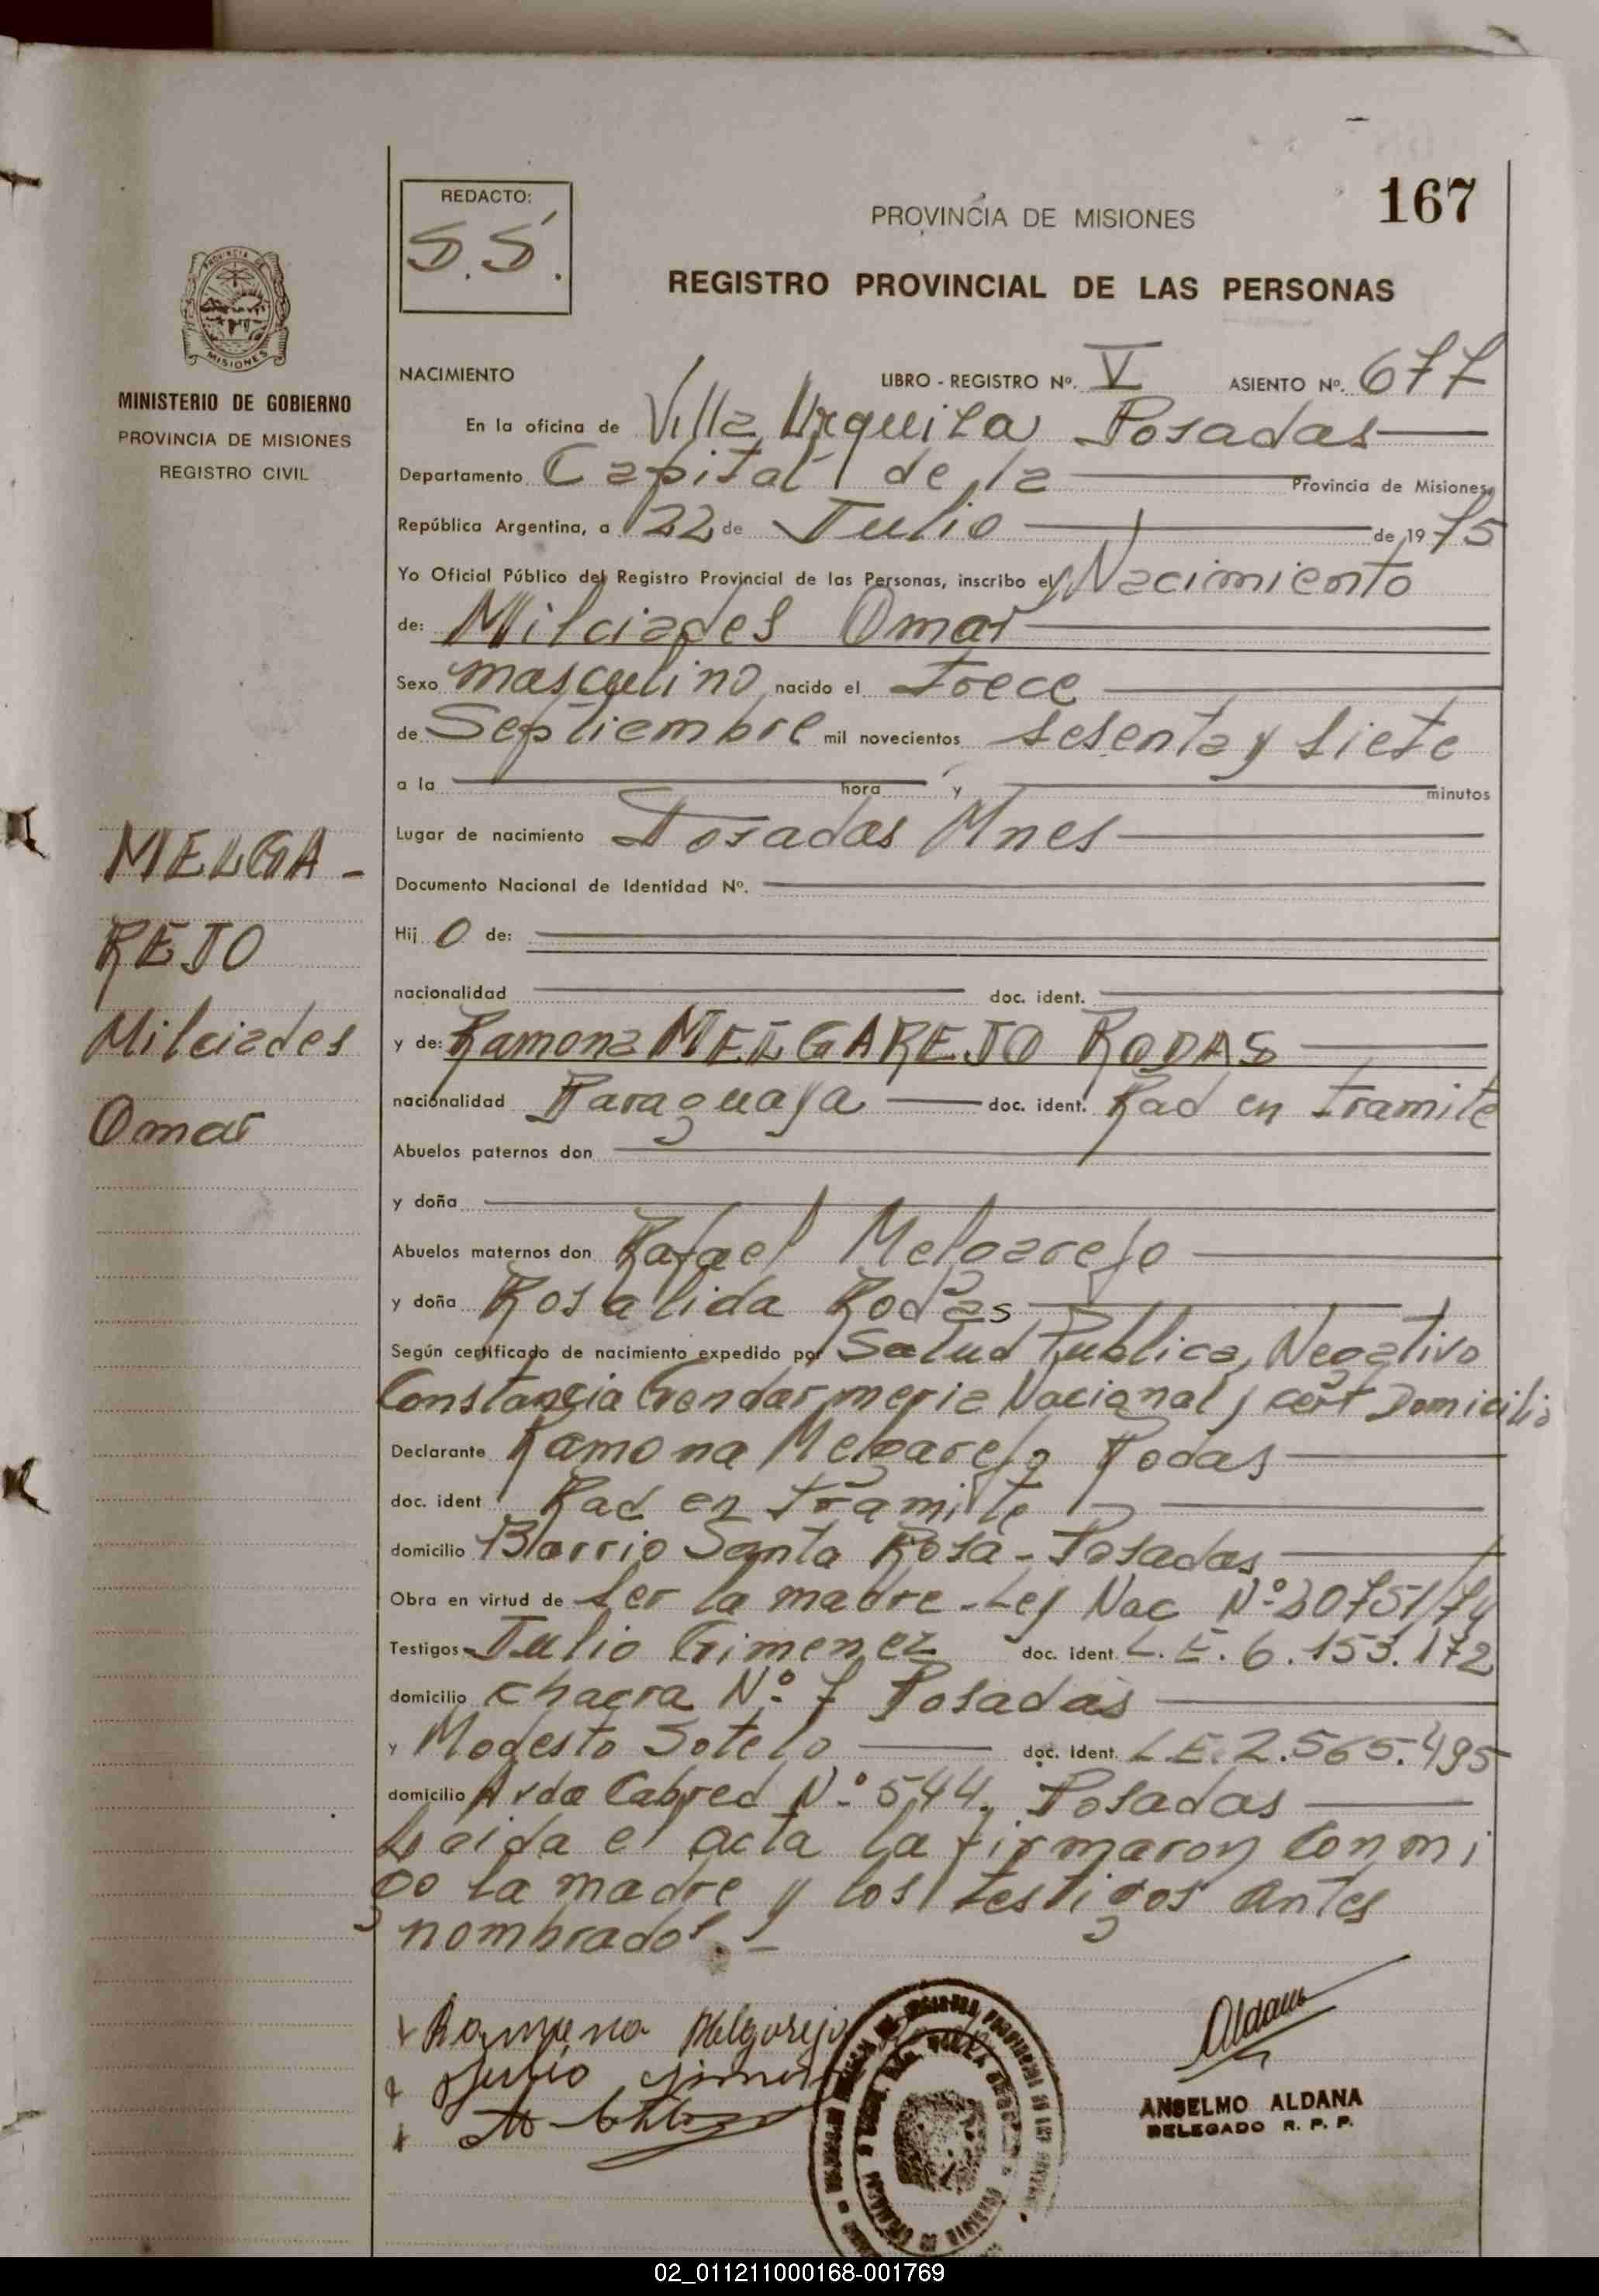 REDACTO:
S.S.
PROVINCIA DE MISIONES
167
REGISTRO PROVINCIAL DE LAS PERSONAS
MISIONES
MINISTERIO DE GOBIERNO
PROVINCIA DE MISIONES
REGISTRO CIVIL
NACIMIENTO LIBRO - REGISTRO Nº. V ASIENTO Nº. 677
En la oficina de Villa Urquiza Posadas
Departamento Capital de la Provincia de Misiones,
República Argentina, a 22 de Julio de 1975
Yo Oficial Público del Registro Provincial de las Personas, inscribo el Nacimiento
de: Milciades Omar
Sexo masculino nacido el trece
de Septiembre mil novecientos sesenta y siete
a la hora y minutos
Lugar de nacimiento Posadas Mnes
Documento Nacional de Identidad Nº.
Hij o de:
nacionalidad doc. ident.
y de: Ramona MELGAREJO RODAS
nacionalidad Paraguaya doc. ident. Rad en tramite
Abuelos paternos don
y doña
Abuelos maternos don Rafael Melgarejo
y doña Rosalida Rodas
Según certificado de nacimiento expedido por Salud Publica, Negativo
Constancia Gendarmeria Nacional y cert Domicilio
Declarante Ramona Melgarejo Rodas
doc. ident Rad en tramite
domicilio Barrio Santa Rosa - Posadas
Obra en virtud de ser la madre - Ley Nac Nº 20751/74
Testigos Julio Gimenez doc. ident. L.E. 6.153.172
domicilio chacra Nº 7 Posadas
y Modesto Sotelo doc. Ident. L.E. 2.565.495
domicilio Avda Cabred Nº 544. Posadas
Leida el acta la firmaron conmi
go la madre y los testigos antes
nombrados. -
MELGA-
REJO
Milciades
Omar
Ramona Melgarejo
Julio
Aldana
ANSELMO ALDANA
DELEGADO R. P. P.
02_011211000168-001769